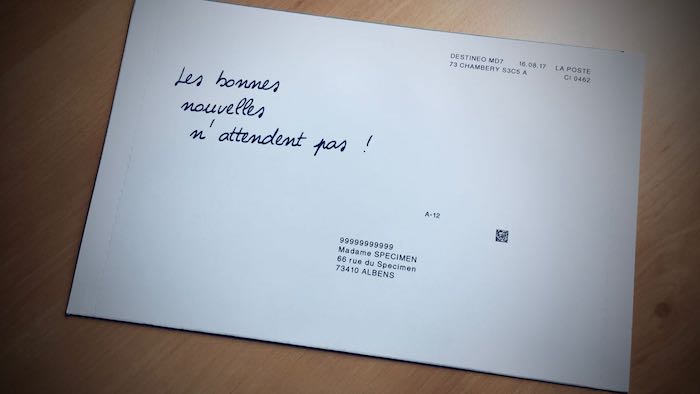 Les bonnes
nouvelles
n'attendent pas !
DESTINEO MD7 16.08.17 LA POSTE
73 CHAMBERY S3C5 A CI 0462
A-12
99999999999
Madame SPECIMEN
66 rue du Specimen
73410 ALBENS